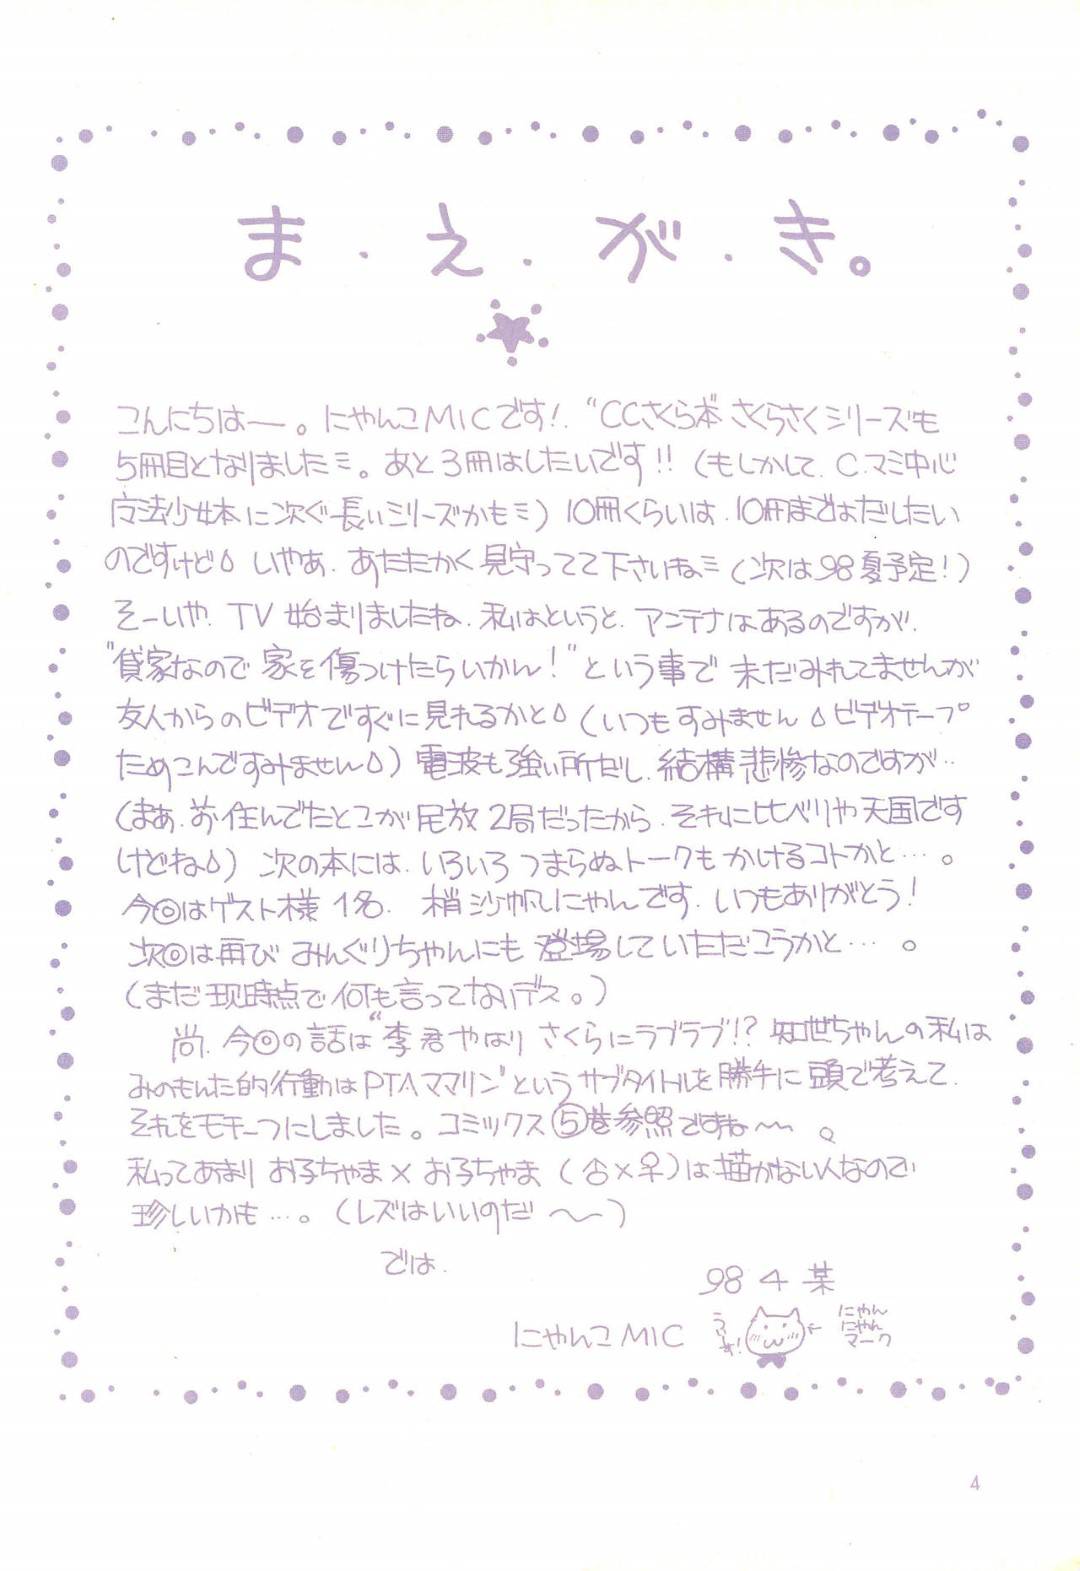 ま.え.が.き。
こんにちはー。にゃんこMICです!.“CCさくら本”さくらさくシリーズも
5冊目となりましたミ。あと3冊はしたいです!!(もしかして.C.マミ中心
魔法少女本に次ぐ長いシリーズかもミ)10冊くらいは.10冊まではだしたい
のですけど いやあ.あたたかく見守ってて下さいねミ(次は98夏予定!)
そーいや.TV始まりましたね.私はというと.アンテナはあるのですが.
“貸家なので家を傷つけたらいかん!”という事で未だみれてませんが
友人からのビデオですぐに見れるかと(いつもすみません ビデオテープ
ためこんですみません)電波も強い所だし.結構悲惨なのですが‥
(まあ.昔住んでたとこが民放2局だったから.それに比べりゃ天国です
けどね)次の本には.いろいろつまらぬトークもかけるコトかと…。
今回はゲスト様1名.梢沙帆にゃんです.いつもありがとう!
次回は再びみんぐりちゃんにも登場していただこうかと…。
(まだ現時点で何も言ってないデス。)
尚.今回の話は“李君やはりさくらにラブラブ!?知世ちゃんの私は
みのもんた的行動はPTAママリン”というサブタイトルを勝手に頭で考えて.
それをモチーフにしました。コミックス⑤巻参照ですね〜。
私ってあまりお子ちゃま×お子ちゃま(♂×♀)は描かない人なので
珍しいかも…。(レズはいいのだ〜)
では.
98 4 某
にゃんこMIC
うぃーす!
←にゃんにゃんマーク
4